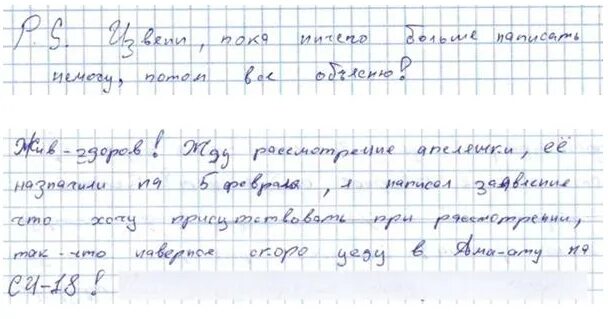 P.S. Извени, пока ничего больше написать
немогу, потом все объясню!
Жив-здоров! Жду рассмотрение апеляшки, её
назначили на 5 февраля, я написал заявление
что хочу присутствовать при рассмотрении,
так-что наверное скоро уеду в Алма-ату на
СИ-18!